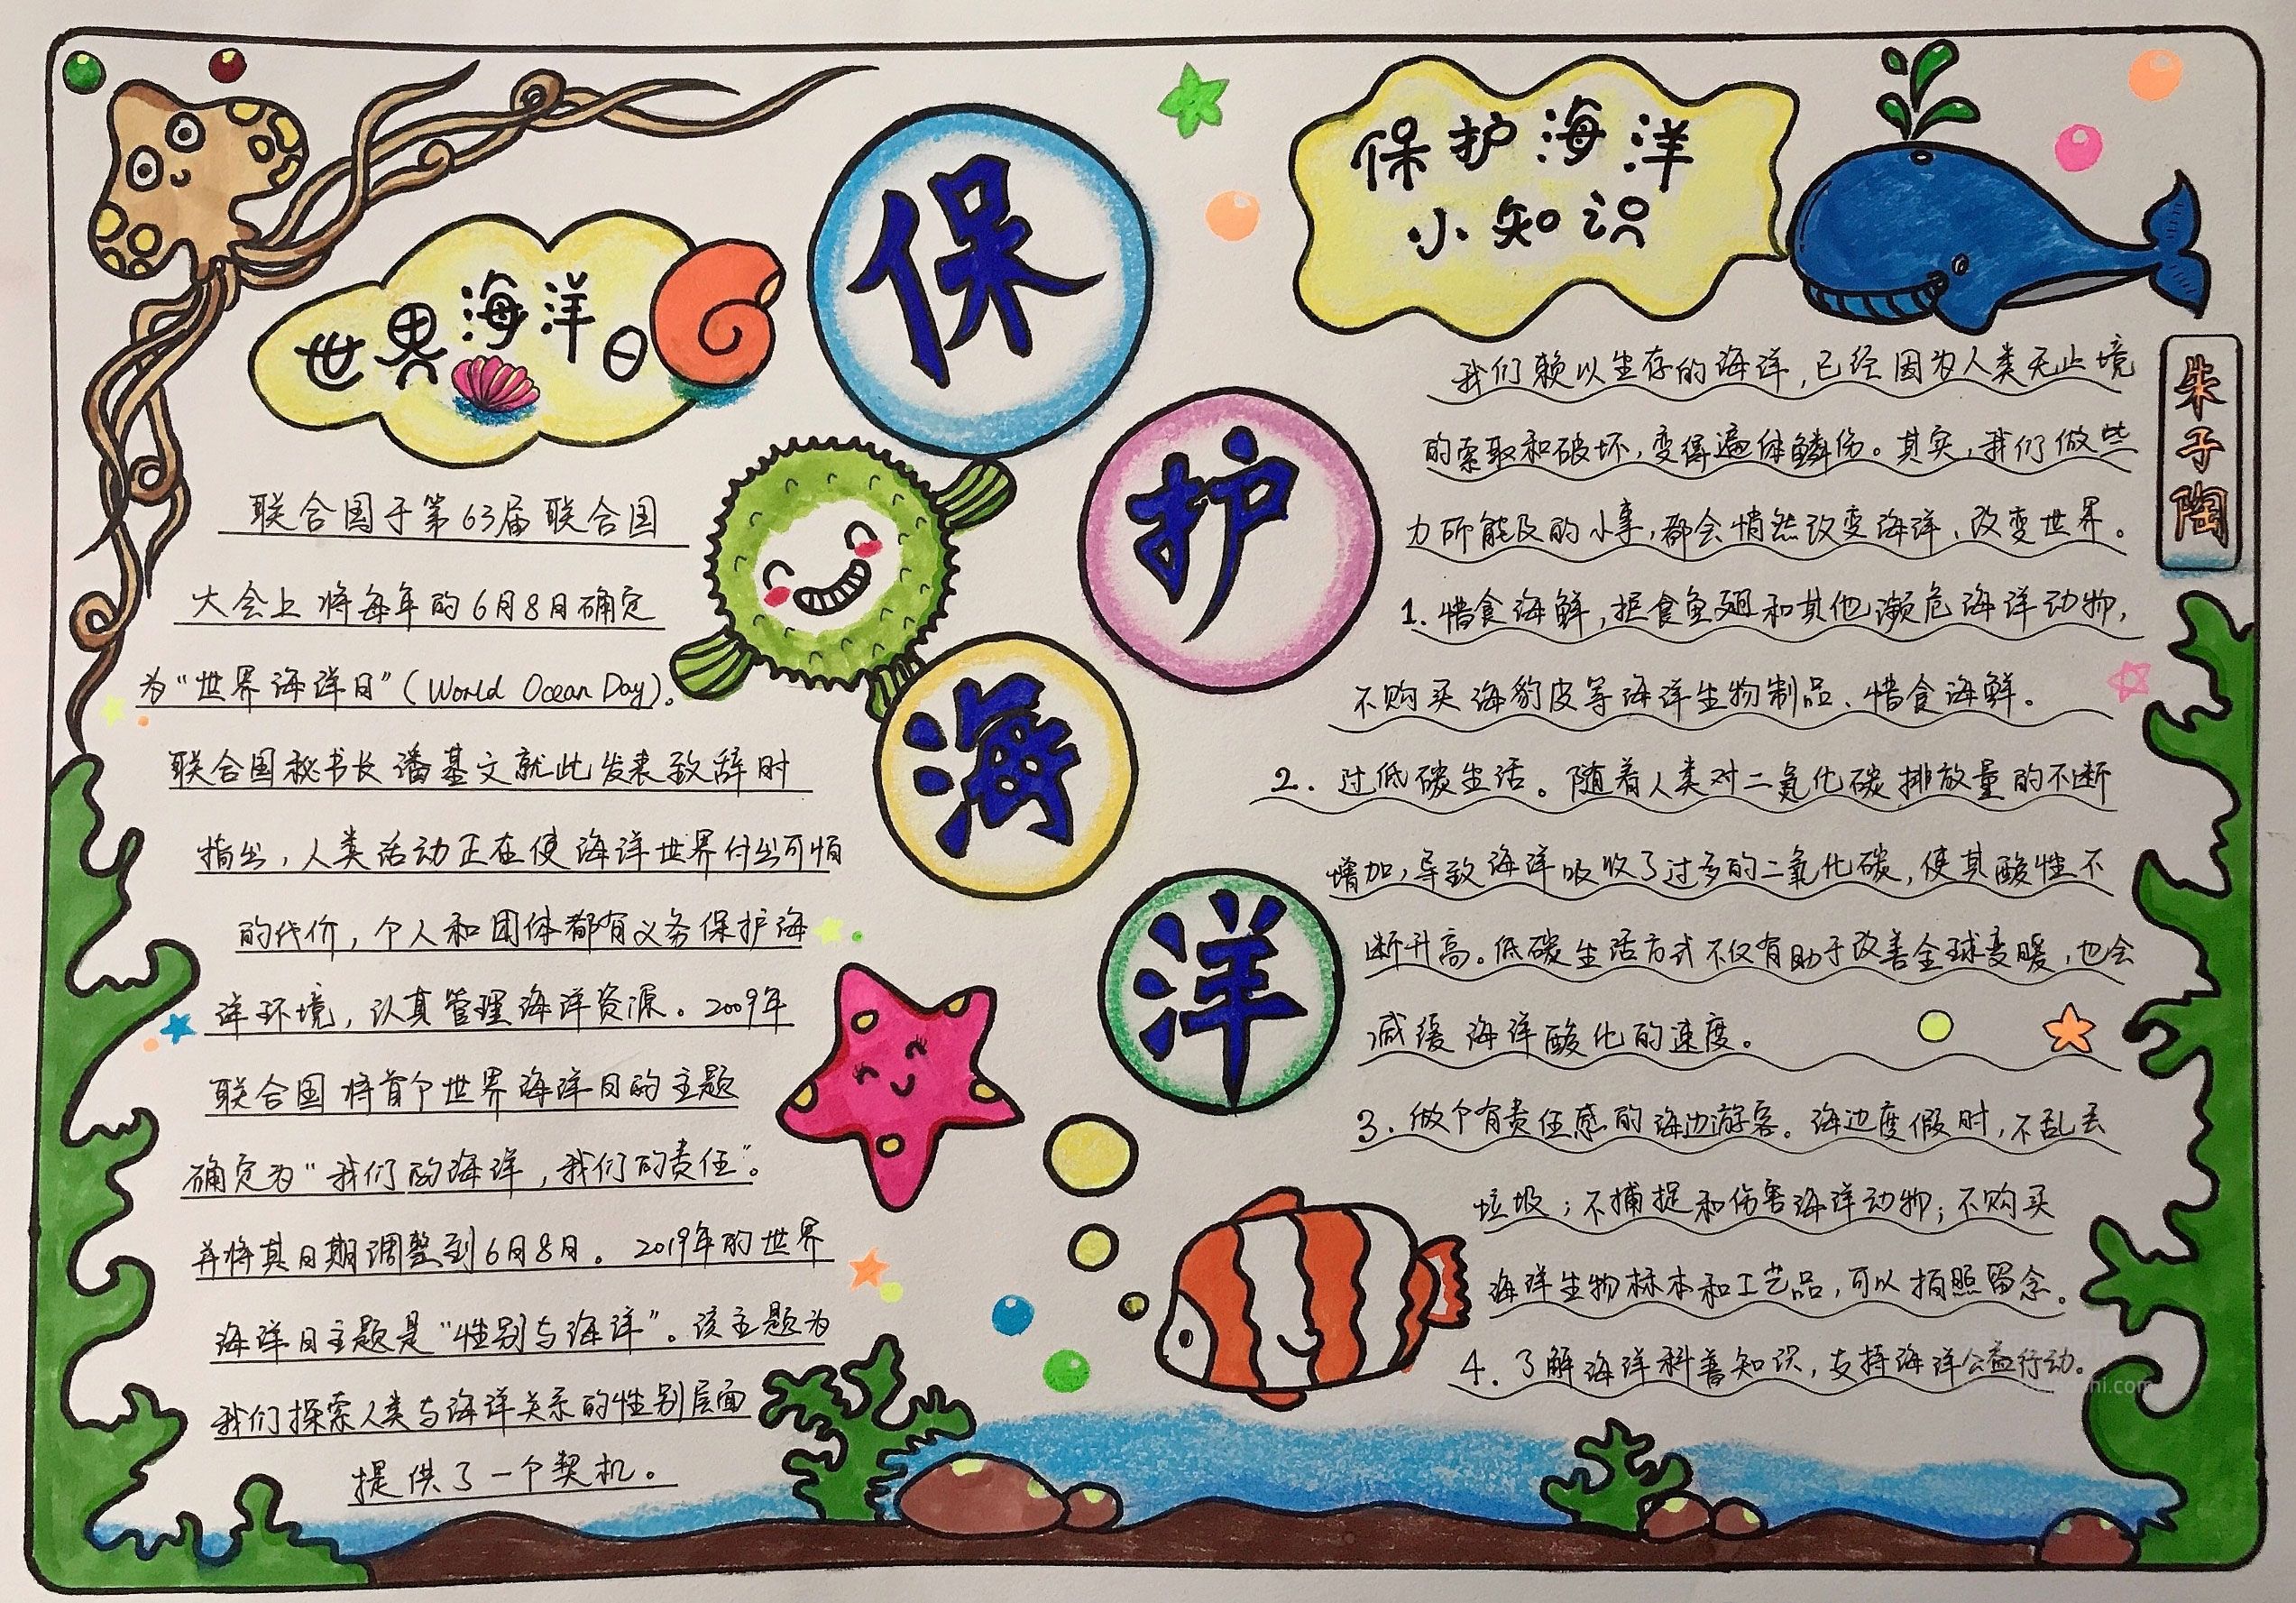 保护海洋
世界海洋日
联合国于第63届联合国
大会上将每年的6月8日确定
为“世界海洋日”(World Ocean Day)。
联合国秘书长潘基文就此发表致辞时
指出，人类活动正在使海洋世界付出可怕
的代价，个人和团体都有义务保护海
洋环境，认真管理海洋资源。2009年
联合国将首个世界海洋日的主题
确定为“我们的海洋，我们的责任”。
并将其日期调整到6月8日。2019年的世界
海洋日主题是“性别与海洋”。该主题为
我们探索人类与海洋关系的性别层面
提供了一个契机。
保护海洋
小知识
我们赖以生存的海洋，已经因为人类无止境
的索取和破坏，变得遍体鳞伤。其实，我们做些
力所能及的小事，都会悄然改变海洋，改变世界。
1.惜食海鲜，拒食鱼翅和其他濒危海洋动物，
不购买海豹皮等海洋生物制品、惜食海鲜。
2.过低碳生活。随着人类对二氧化碳排放量的不断
增加，导致海洋吸收了过多的二氧化碳，使其酸性不
断升高。低碳生活方式不仅有助于改善全球变暖，也会
减缓海洋酸化的速度。
3.做个有责任感的海边游客。海边度假时，不乱丢
垃圾；不捕捉和伤害海洋动物；不购买
海洋生物标本和工艺品，可以拍照留念。
4.了解海洋科普知识，支持海洋公益行动。
朱子陶